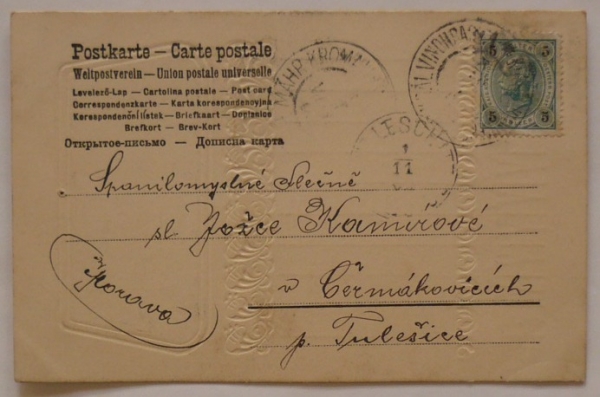 Postkarte — Carte postale
Weltpostverein — Union postale universelle
Levelező-Lap — Cartolina postale — Post card
Correspondenzkarte — Karta korespondencyjna
Korespondenční lístek — Briefkaart — Dopisnice
Brefkort — Brev-Kort
Открытое-письмо — Дописна карта
5 5
5 5
LESCH
1
11
Spanilomyslné Slečně
sl. Jožce Kamírové
v Čermákovicích
p. Tulešice
Morava